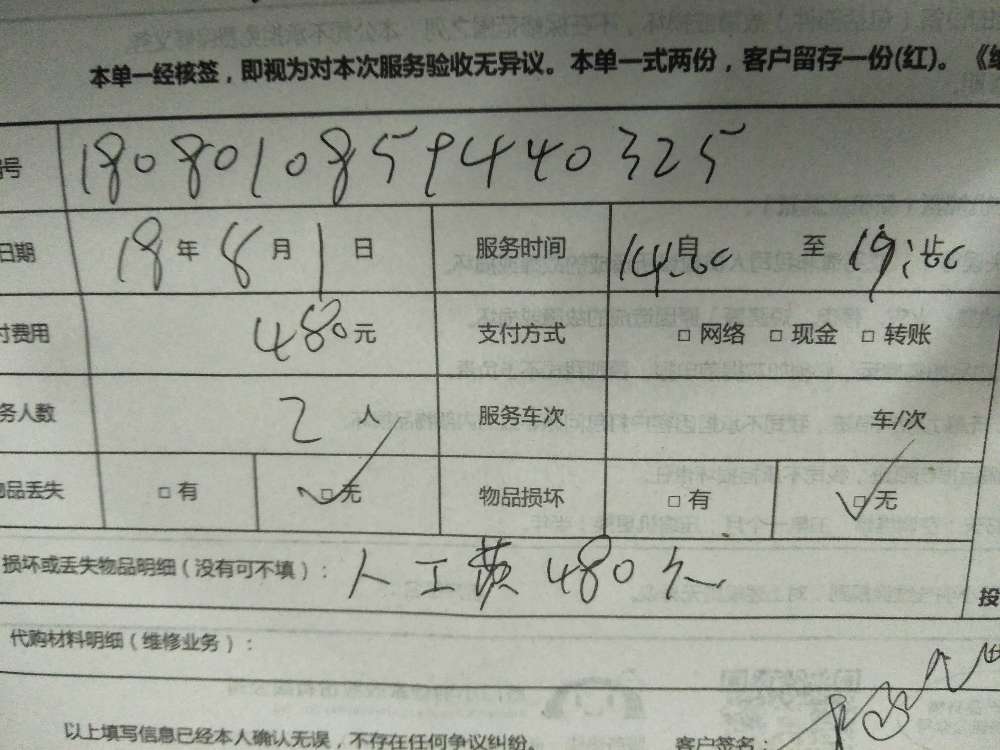 本单一经核签，即视为对本次服务验收无异议。本单一式两份，客户留存一份(红)。《维
号 180801085944032 5
日期 18年 8月 1日 服务时间 14:00 自 至 19:
付费用 480元 支付方式 □ 网络 □ 现金 □ 转账
务人数 2 人 服务车次 车/次
物品丢失 □ 有 □ 无 物品损坏 □ 有 □ 无
损坏或丢失物品明细（没有可不填）： 人工费480元
投
代购材料明细（维修业务）：
以上填写信息已经本人确认无误，不存在任何争议纠纷。 客户签名：